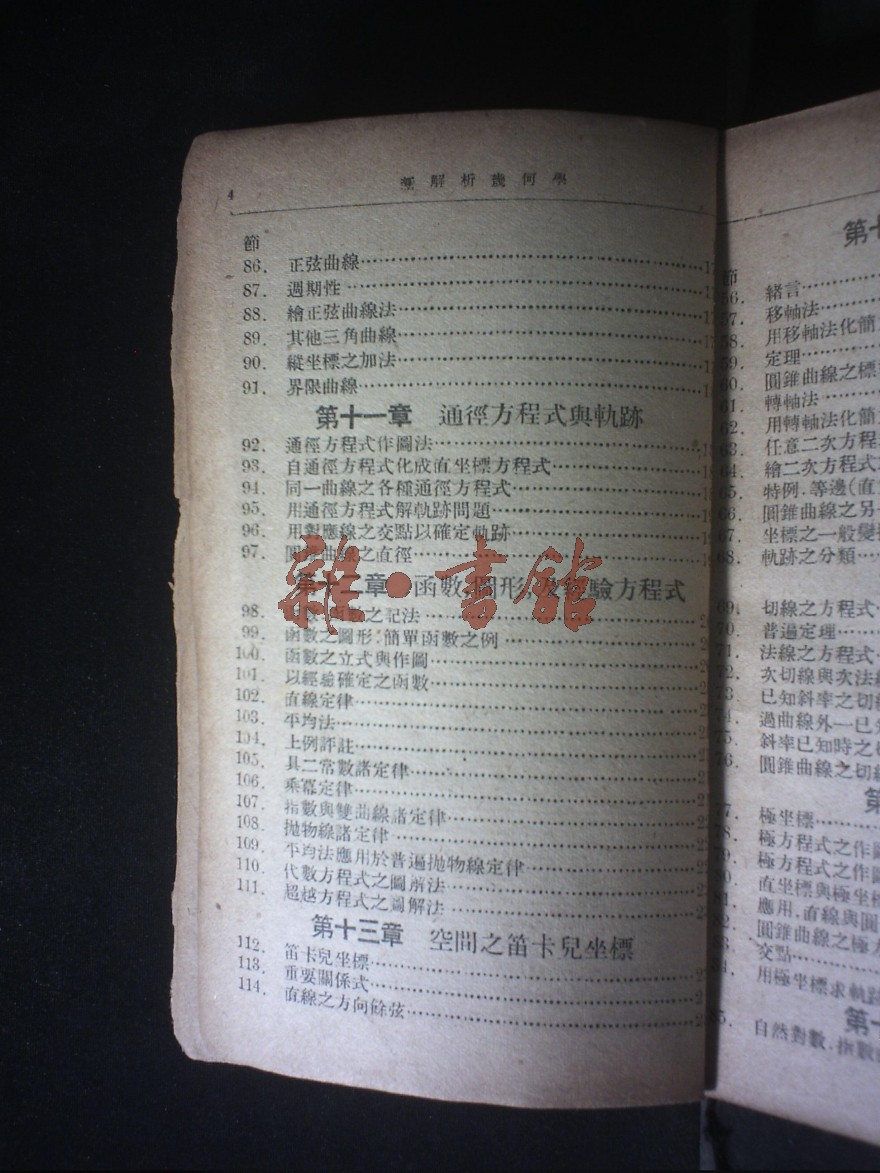 4
解析幾何學
節
86. 正弦曲線
87. 週期性
88. 繪正弦曲線法
89. 其他三角曲線
90. 縱坐標之加法
91. 界限曲線
第十一章 通徑方程式與軌跡
92. 通徑方程式作圖法
93. 自通徑方程式化成直坐標方程式
94. 同一曲線之各種通徑方程式
95. 用通徑方程式解軌跡問題
96. 用對應線之交點以確定軌跡
97. 圓錐曲線之直徑
第十二章 函數,圖形,及經驗方程式
98. 之記法
99. 函數之圖形.簡單函數之例
100. 函數之立式與作圖
101. 以經驗確定之函數
102. 直線定律
103. 平均法
104. 上例評註
105. 具二常數諸定律
106. 乘冪定律
107. 指數與雙曲線諸定律
108. 拋物線諸定律
109. 平均法應用於普遍拋物線定律
110. 代數方程式之圖解法
111. 超越方程式之圖解法
第十三章 空間之笛卡兒坐標
112. 笛卡兒坐標
113. 重要關係式
114. 直線之方向餘弦
雜·書館
第十
節
56. 緒言
57. 移軸法
58. 用移軸法化簡
59. 定理
60. 圓錐曲線之標
61. 轉軸法
62. 用轉軸法化簡
63. 任意二次方程
64. 繪二次方程式
65. 特例.等邊(直
66. 圓錐曲線之另一
67. 坐標之一般變
68. 軌跡之分類
69. 切線之方程式
70. 普遍定理
71. 法線之方程式
72. 次切線與次法線
73. 已知斜率之切線
74. 過曲線外一已知
75. 斜率已知時之切
76. 圓錐曲線之切線
第
77. 極坐標
78. 極方程式之作圖
79. 極方程式之作圖
80. 直坐標與極坐標
81. 應用.直線與圓
82. 圓錐曲線之極方
83. 交點
84. 用極坐標求軌跡
第十
85. 自然對數.指數